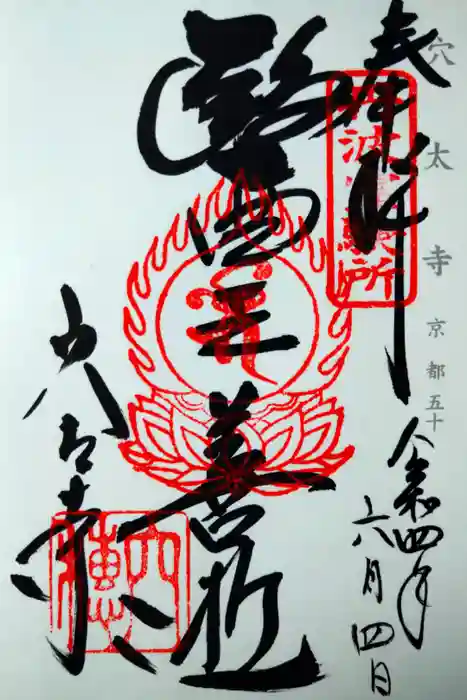 穴太寺 京都五十
奉拝
令和四年
六月四日
醫王善逝
穴太寺